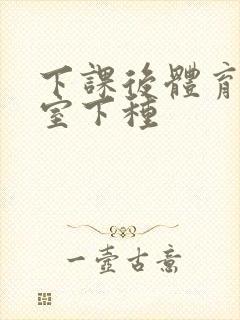 下課後體育
室下種
一壺古意